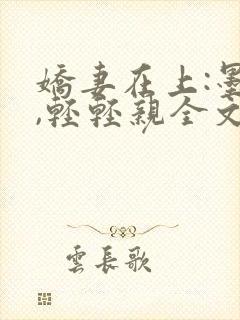 嬌妻在上:墨
,輕輕親全文
雲長歌